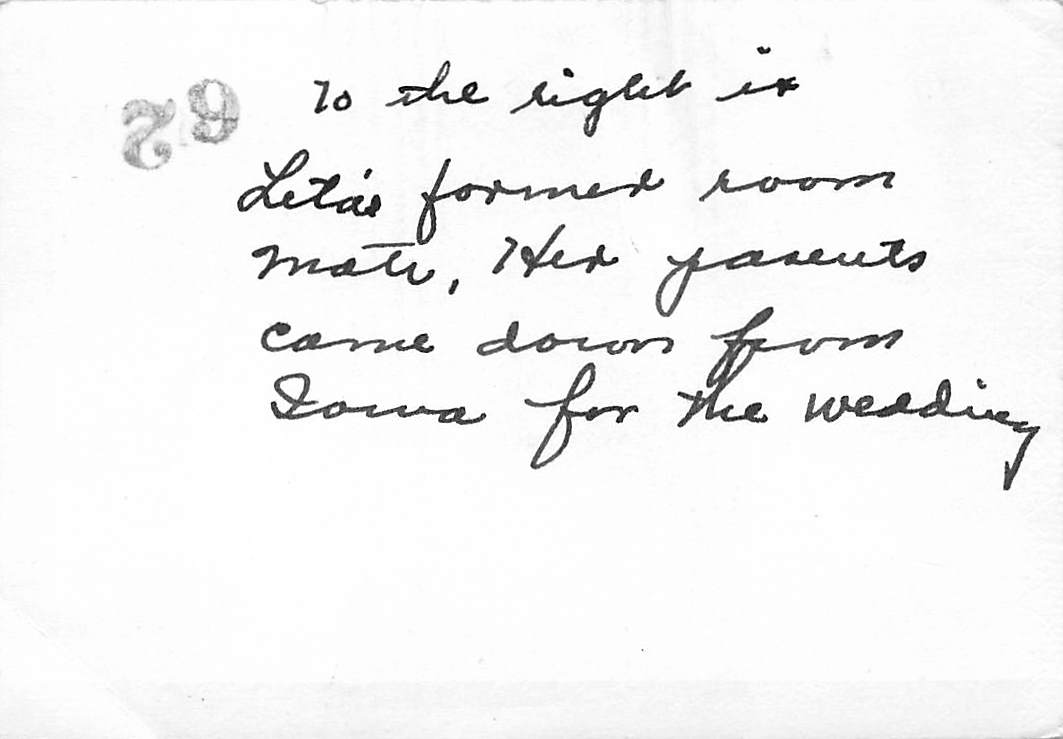 To the right is
Leta's former room
mate, Her parents
came down from
Iowa for the wedding